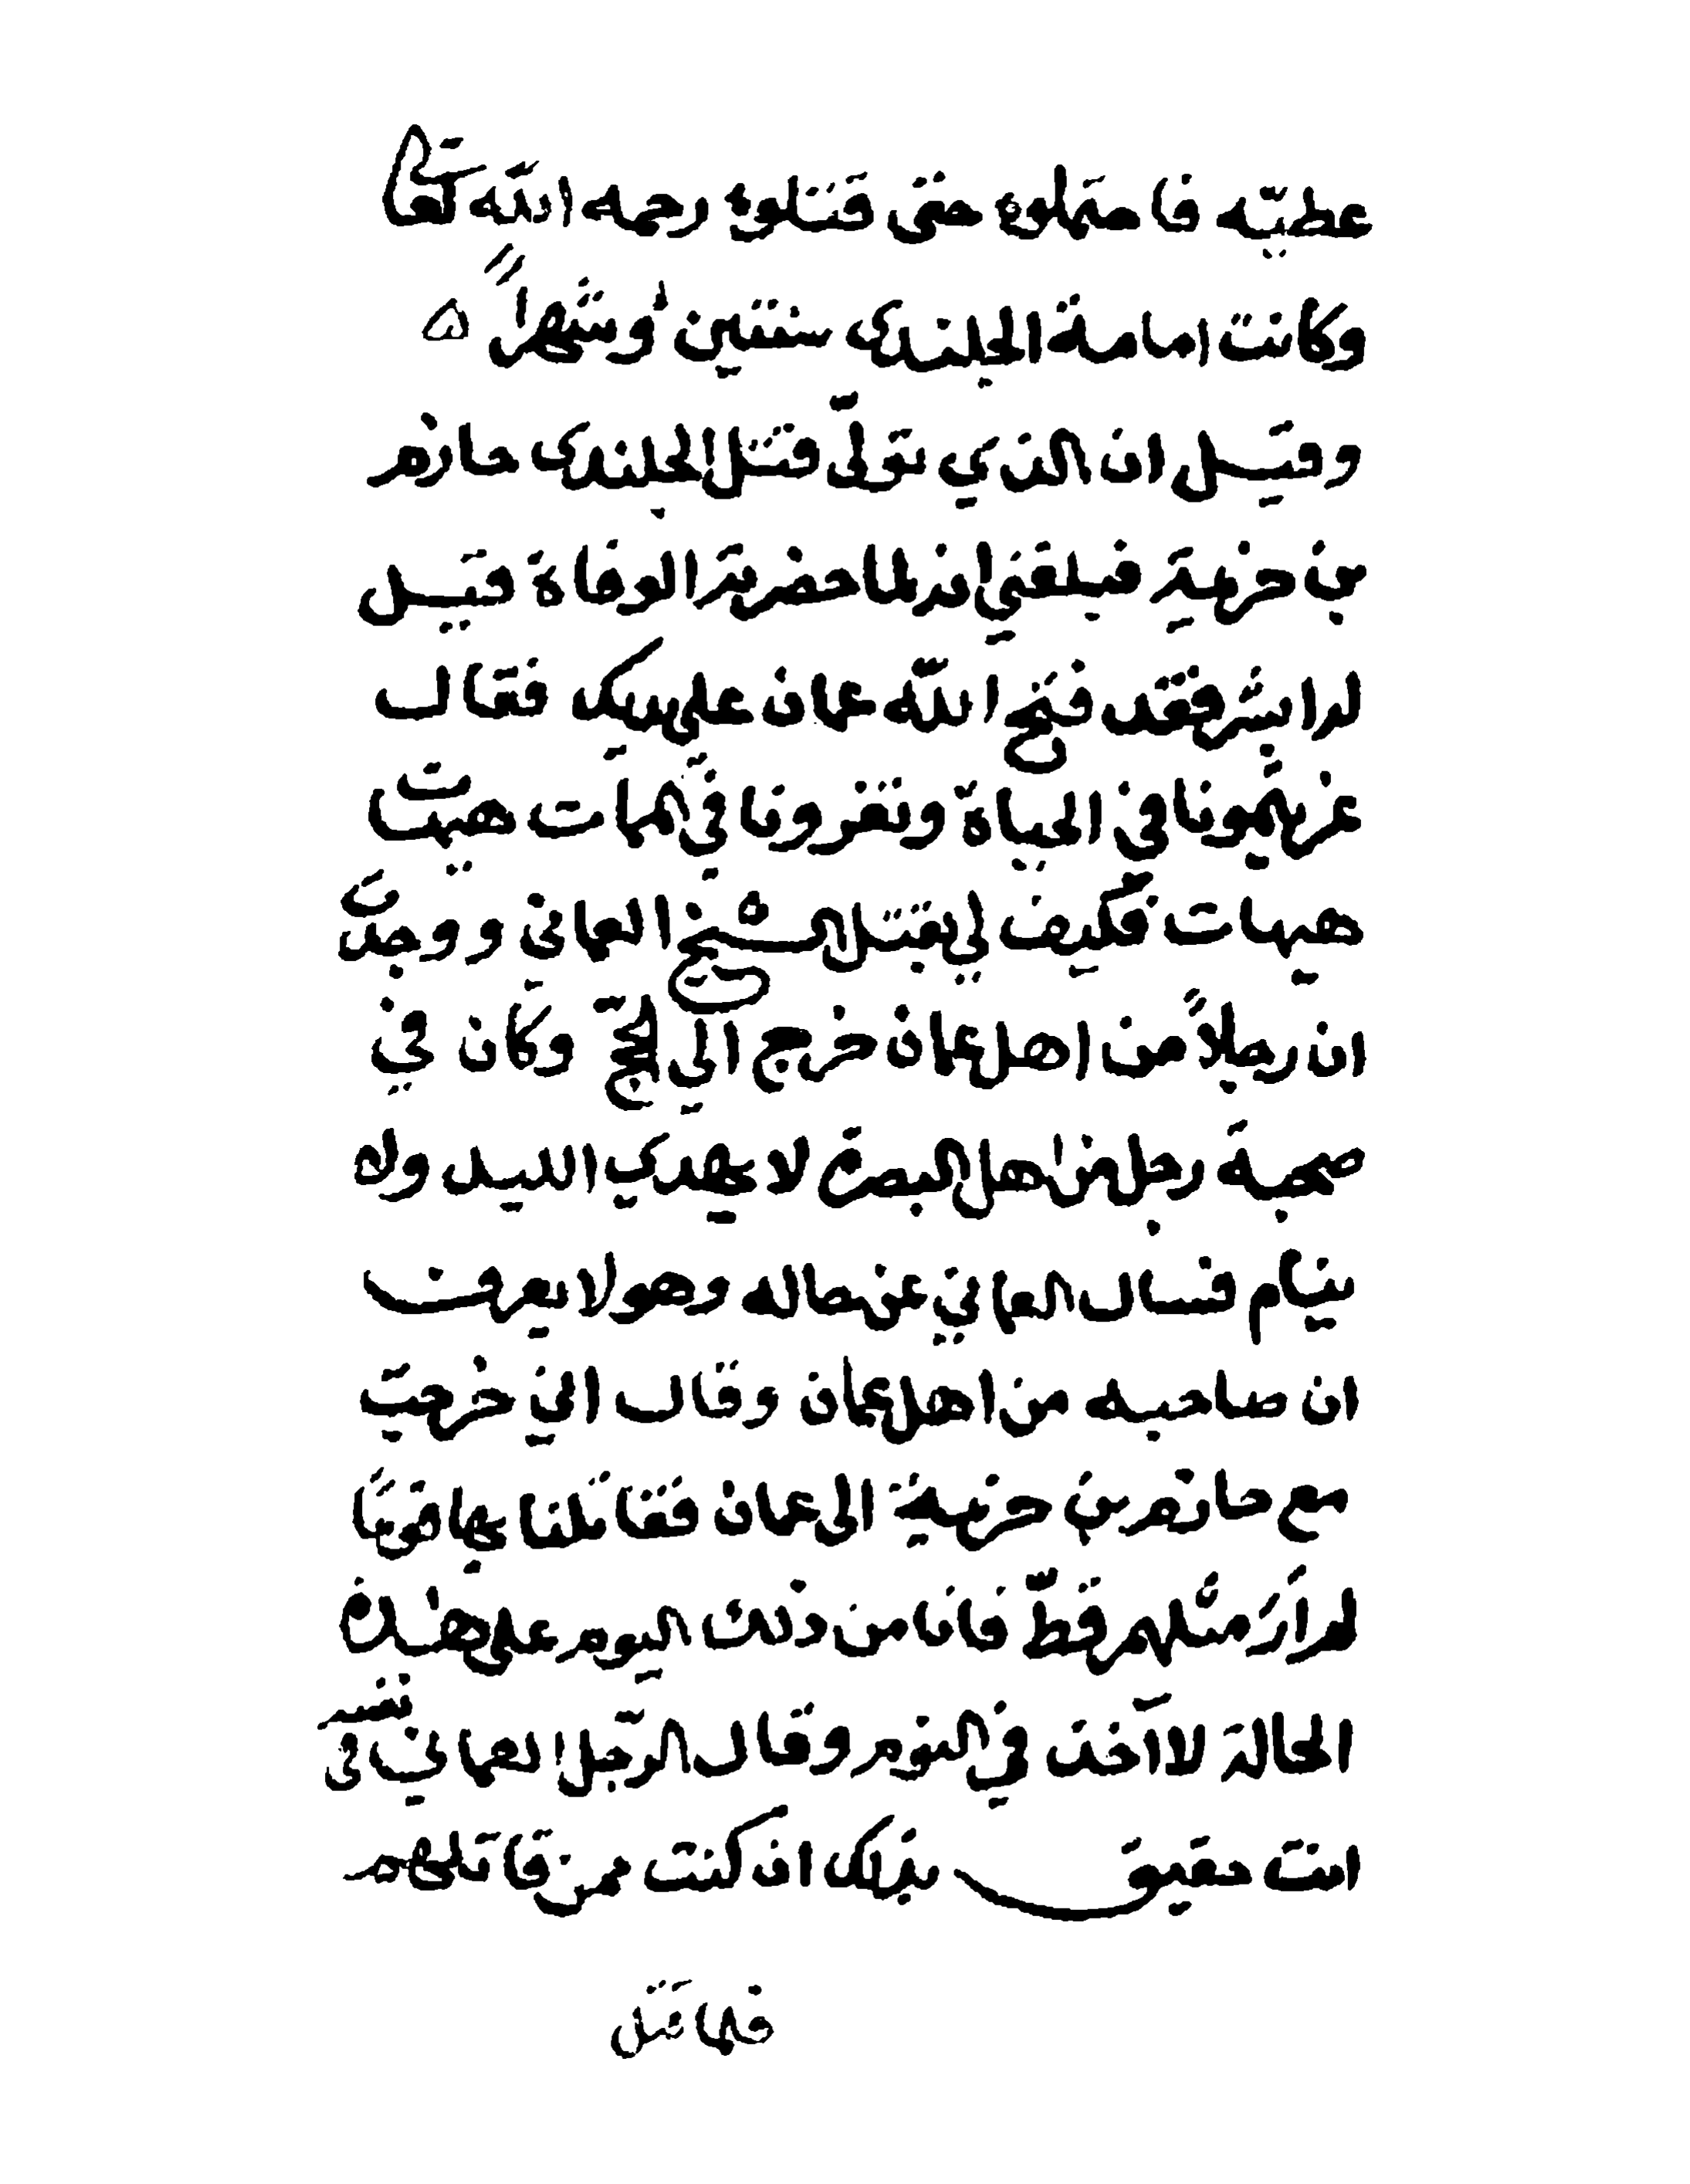 عطيّه فاحتملوه حتى قتلوه رحمه الله تعا
وكانت امامة الجلندى سنتين وشهراً ه
وقيل ان الذي تولّى قتل الجلندى حازم
بن خزيمة فبلغني انه لما حضرته الوفاة قيل
له ابشر فقد فتح الله عمان على يديك فقال
غريتمونا في الحياة وتغرونا في الممات هيهات
هيهات فكيف لي بقتل الشيخ العماني ووجدت
ان رجلاً من اهل عمان خرج الى الحج وكان في
صحبة رجل من اهل البصرة لا يهدي الليل ولا
ينام فسال العماني عن حاله وهو لا يعرف
ان صاحبه من اهل عمان وقال اني خرجت
مع حازم بن خزيمة الى عمان فقاتلنا بها قوماً
لم أرَ مثلهم قطّ فانا من ذلك اليوم على هذه
الحالة لا آخذ في النوم وقال الرجل العماني في نفسه
انت حقيق بذلك ان كنت ممن قاتلهم
فلما قتل